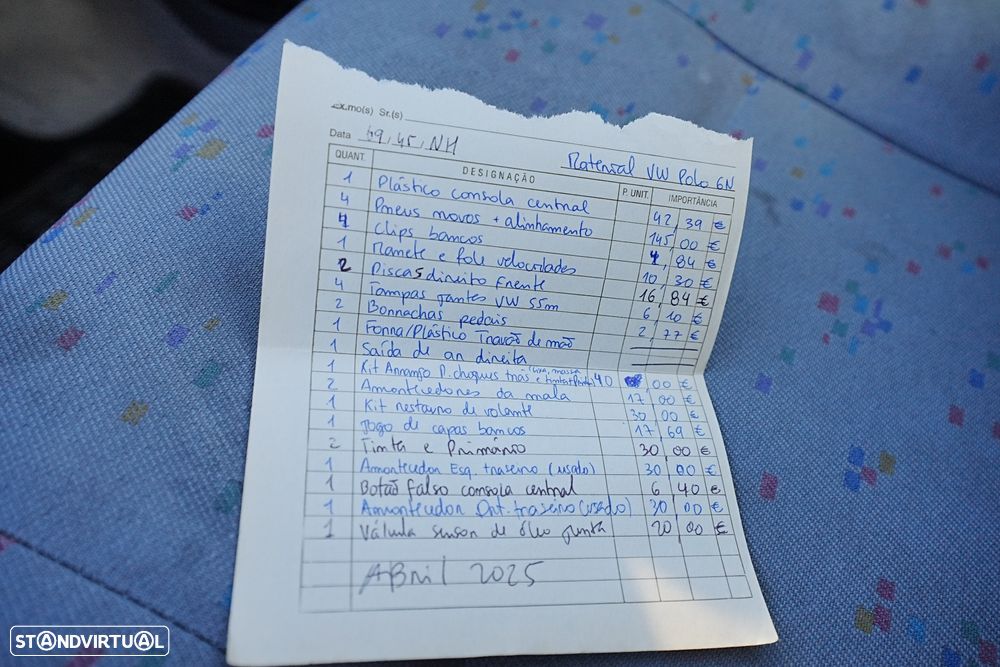 Ex.mo(s) Sr.(s)
Data 49, 45, NH
Material VW Polo 6N
QUANT. DESIGNAÇÃO P. UNIT. IMPORTÂNCIA
1 Plástico consola central 42,39 €
4 Pneus novos + alinhamento 145,00 €
4 Clips bancos 4,84 €
1 Manete e fole velocidades 10,30 €
2 Discos direito Frente 16,84 €
4 Tampas jantes VW 55m 6,10 €
2 Borrachas pedais 2,77 €
1 Forra/Plástico Travão de mão
1 Saída de ar direita
1 Kit Arranjo P. choques trás 40,00 €
2 Amortecedores da mala 17,00 €
1 Kit restauro de volante 30,00 €
1 Jogo de capas bancos 17,69 €
2 Tinta e Primário 30,00 €
1 Amortecedor Esq. traseiro (usado) 30,00 €
1 Botão falso consola central 6,40 €
1 Amortecedor Drt. traseiro (usado) 30,00 €
1 Válvula sensor de óleo junta 20,00 €
Abril 2025
STANDVIRTUAL